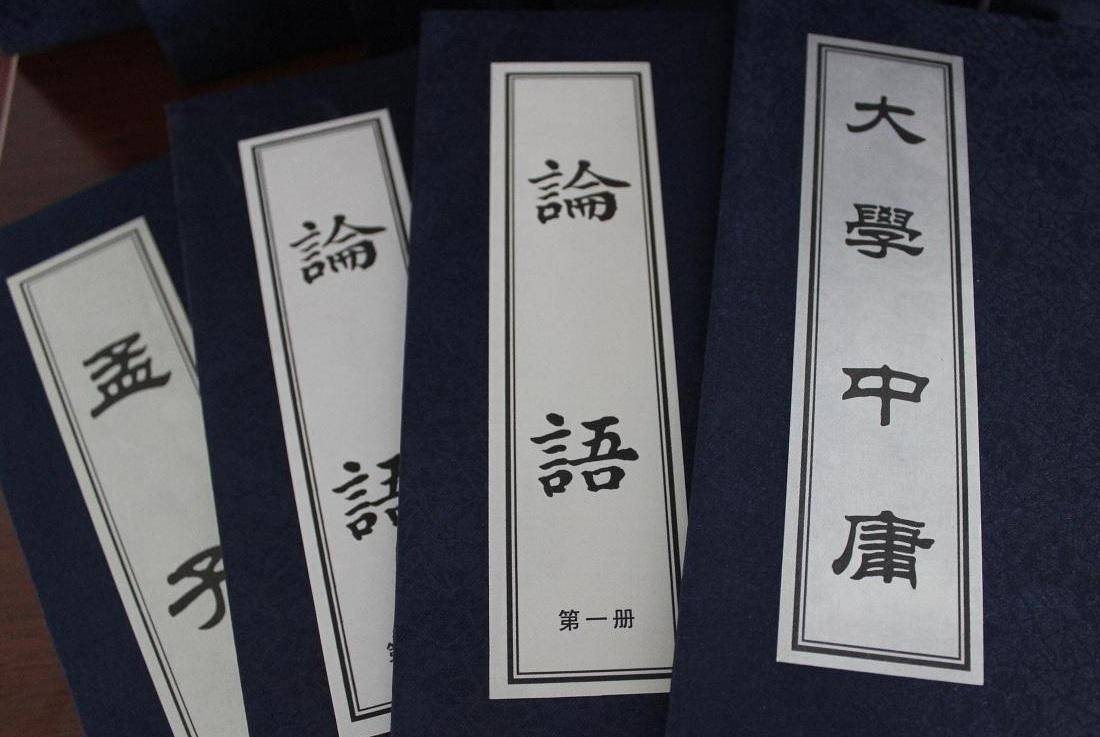 大學中庸
論語
第一册
論語
孟子